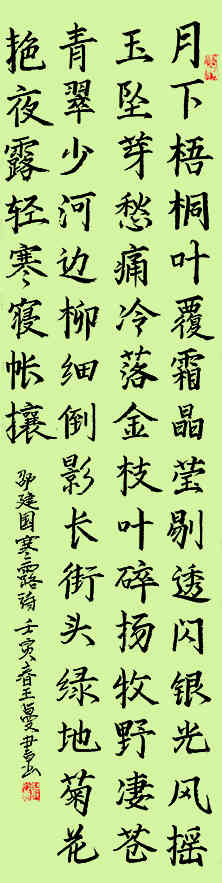 月下梧桐叶覆霜晶莹剔透闪银光风摇
玉坠芽愁痛冷落金枝叶碎扬牧野凄苍
青翠少河边柳细倒影长街头绿地菊花
艳夜露轻寒寝帐攘
邵建国寒露诗壬寅春王曼书